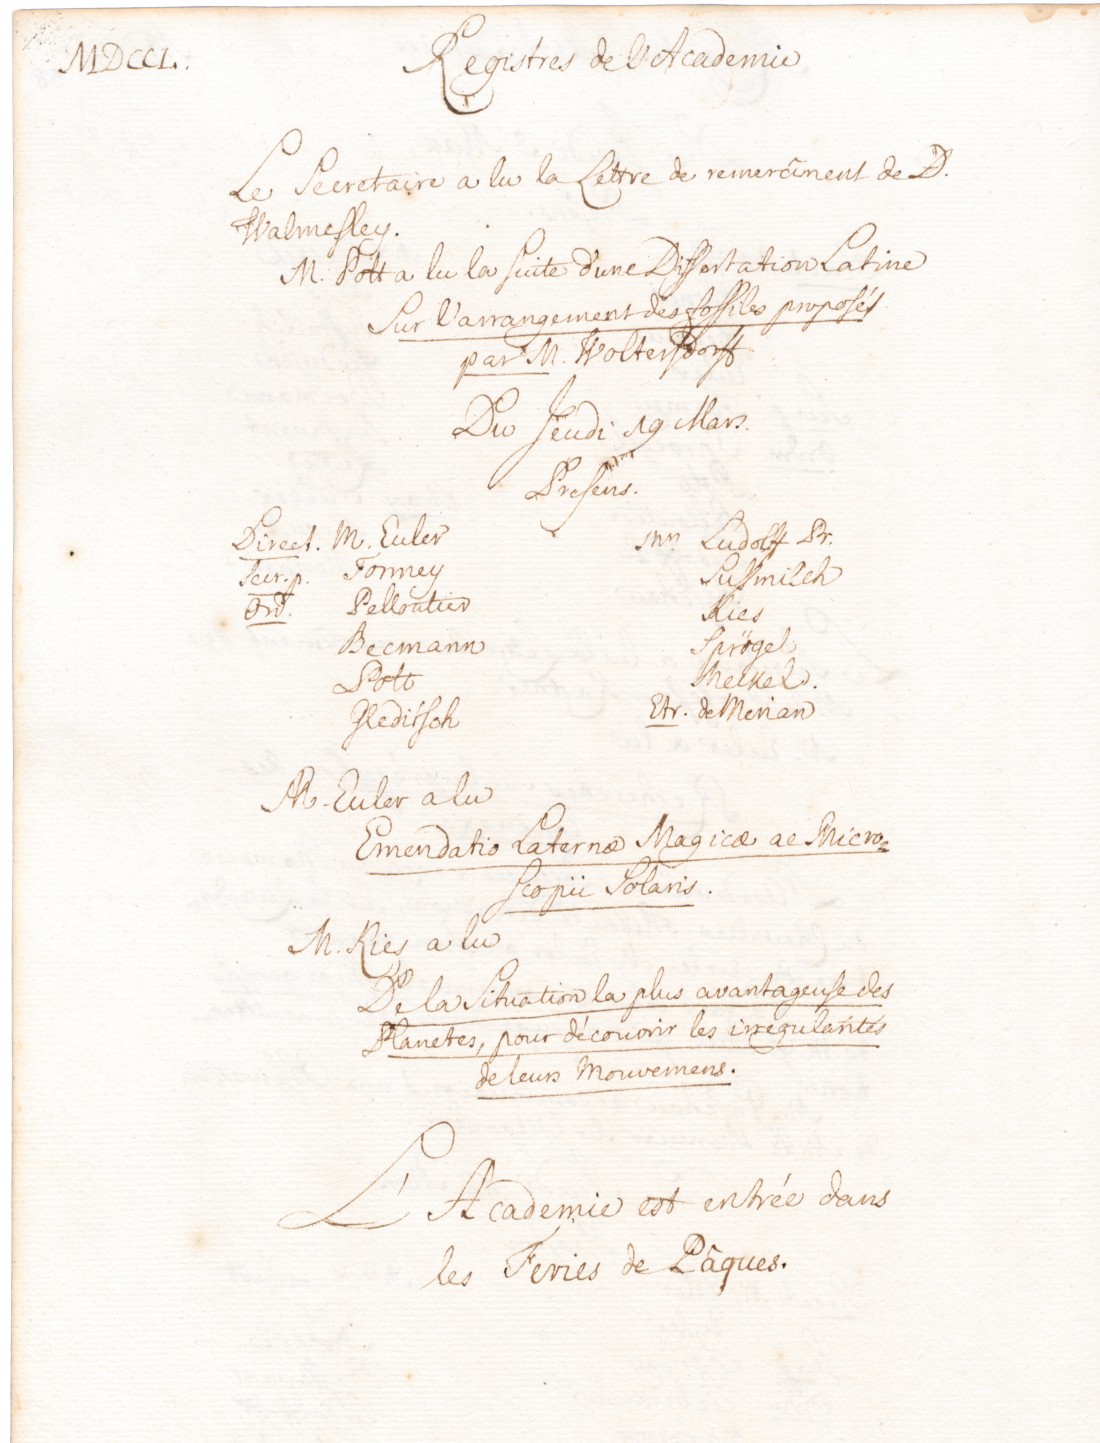 MDCCL. Registres de l'Academie
Le Secretaire a lu la Lettre de remerciment de D.
Walmesley.
M. Pott a lu la suite d'une Dissertation Latine
Sur l'arrangement des fossiles proposés
par M. Woltersdorff
Du Jeudi 19 Mars.
Presens.
Direct. M. Euler
Secr. p. Formey
Ord. Pelloutier
Becmann
Pott
Gleditsch
Ludolff Pr.
Sussmilch
Kies
Sprögel
Meckel.
Etr. de Merian
M. Euler a lu
Emendatio Laternæ Magicæ ac Micro=
scopii Solaris.
M. Kies a lu
De la Situation la plus avantageuse des
Planetes, pour découvrir les irregularités
de leurs Mouvemens.
L'Academie est entrée dans
les Feries de Pâques.